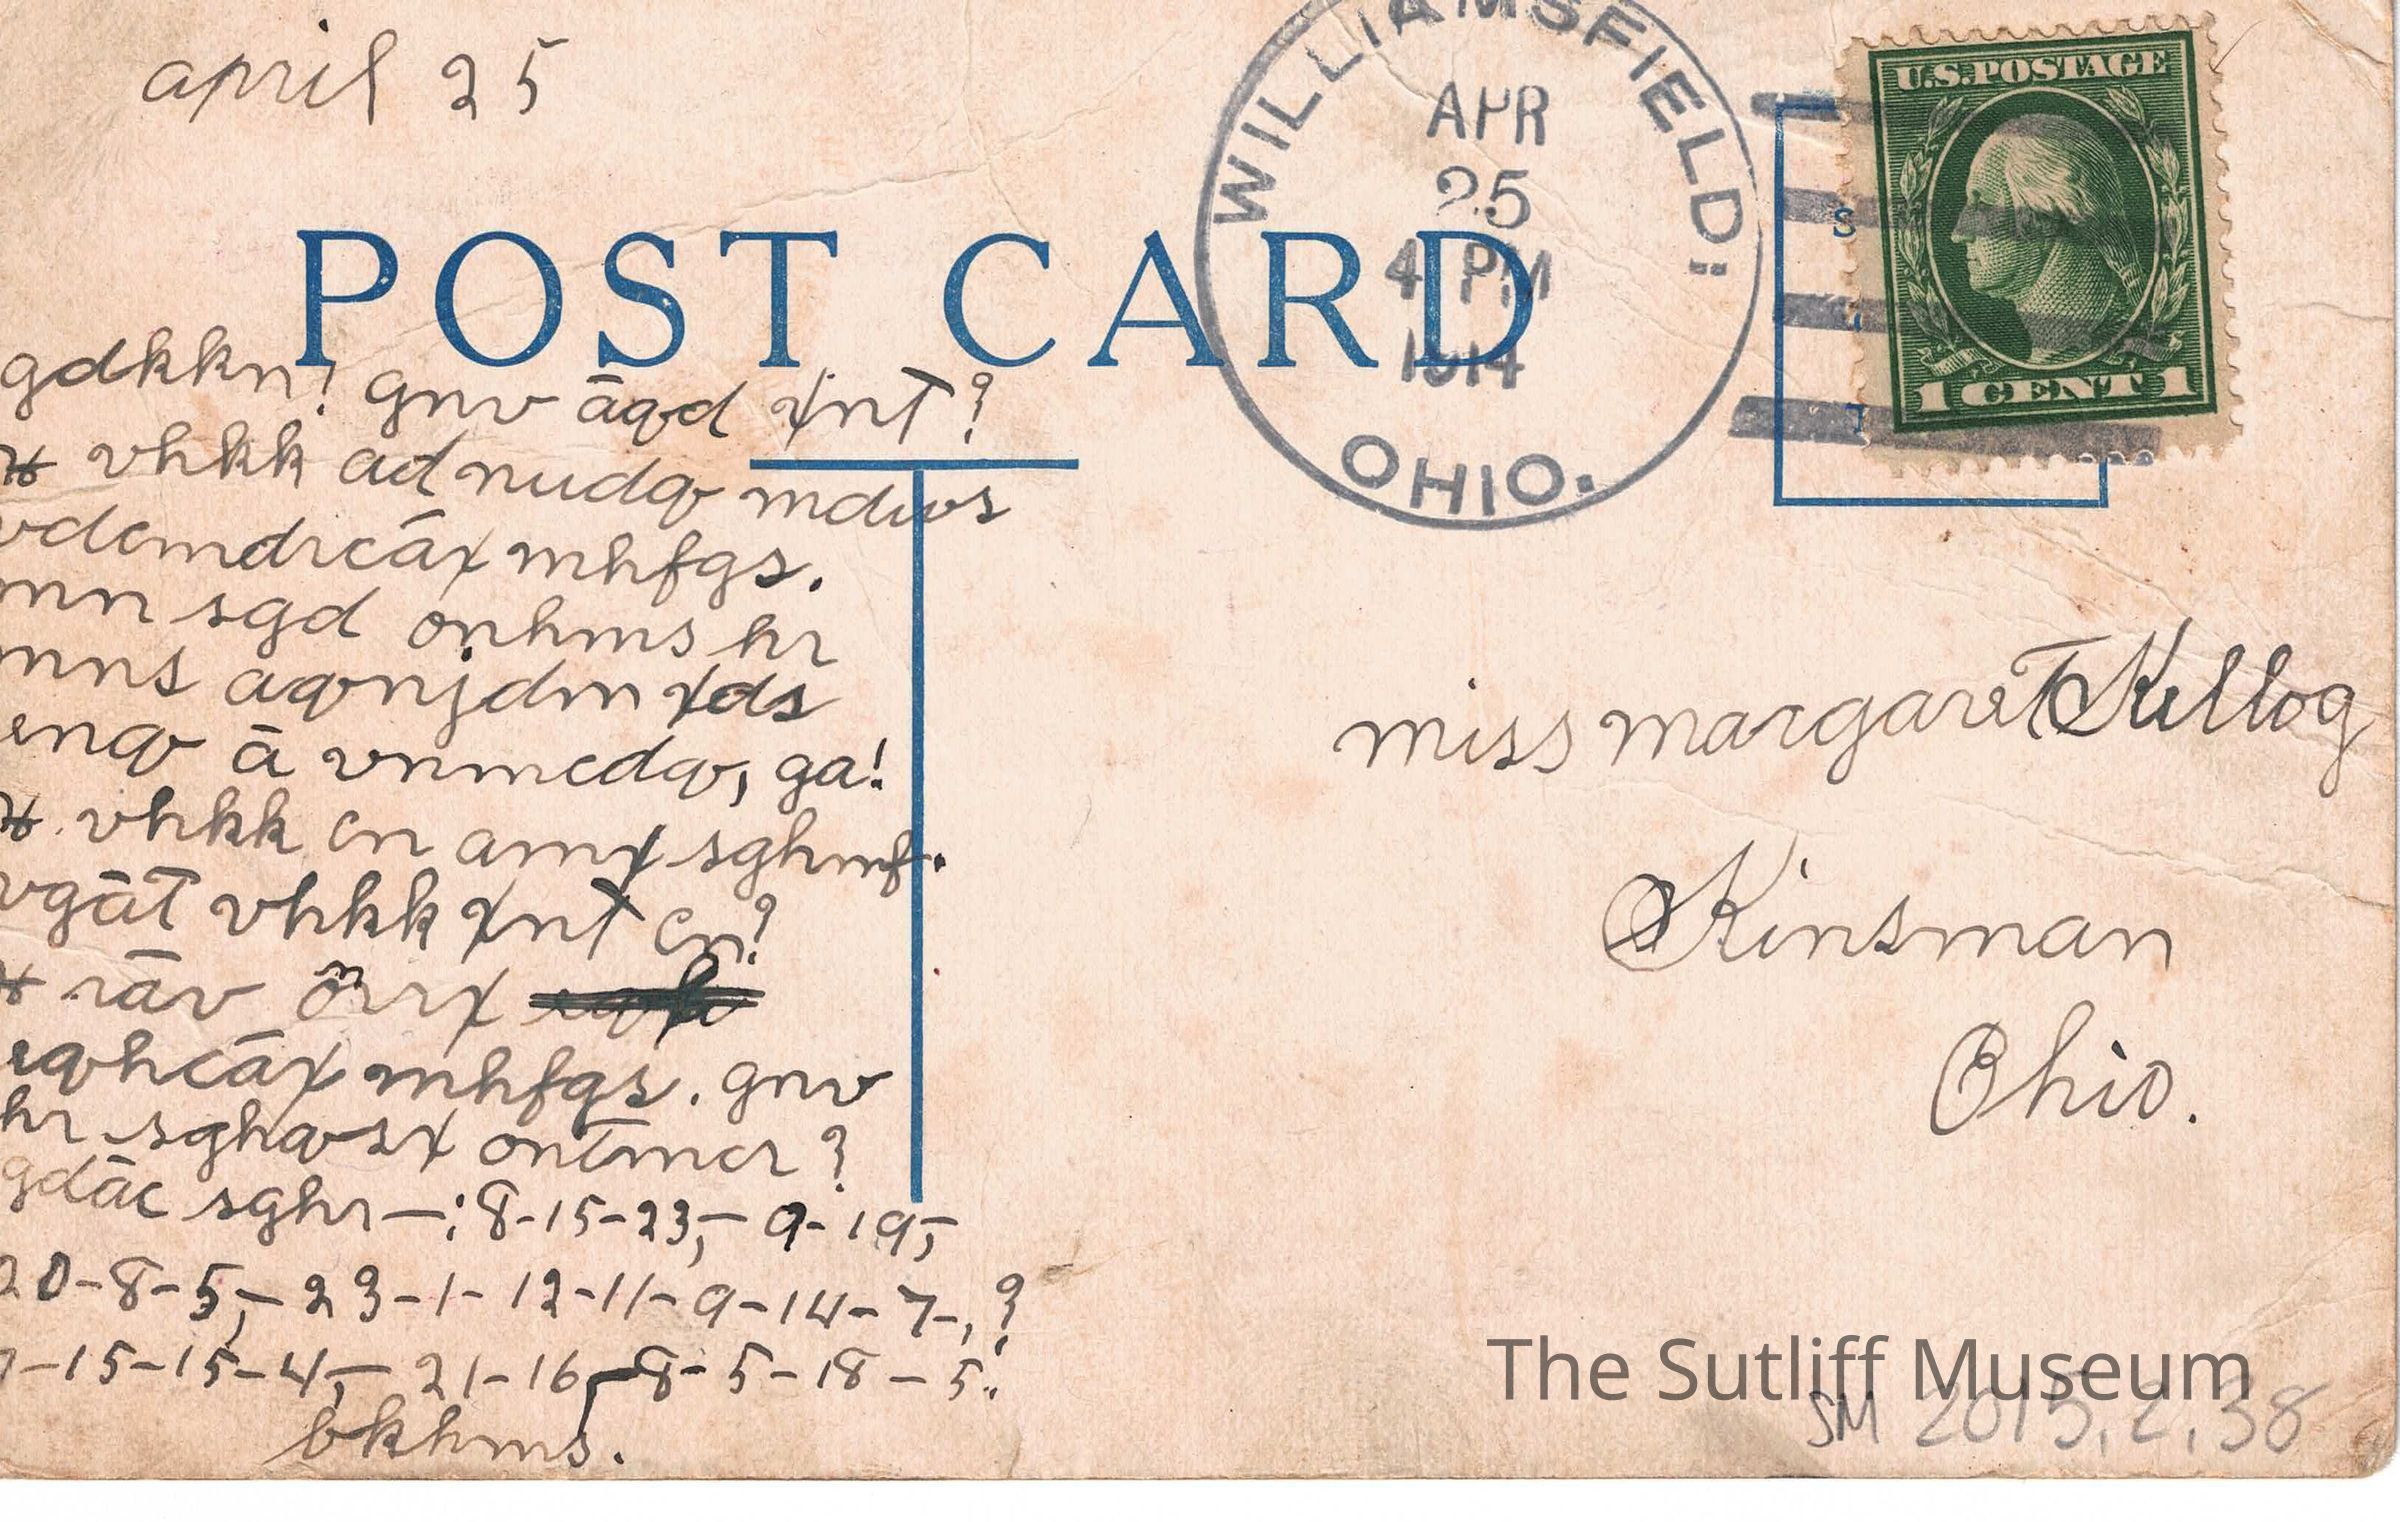 april 25
WILLIAMSFIELD
APR
25
4 PM
1914
OHIO.
U.S.POSTAGE
1 CENT 1
POST CARD
gdkkn! gnv āqd xnT?
H vhkk ad nudq mdws
vdcmdrcāx mhfgs.
mnn sgd onhms hr
mns aqnjdm xds
enq ā vnmcdq, ga!
H vhkk cn amx sghmf.
vgāT vhkk xnT cn?
H rāv
eqhcāx mhfgs. gnv
hr sghqsx onTmcr?
gdāc sghr—: 8-15-23,— 9-19,-
20-8-5,— 23-1-12-11-9-14-7-,?
7-15-15-4,— 21-16,-8-5-18-5.
bkhms.
miss margareT Kellog
Kinsman
Ohio.
The Sutliff Museum
SM 2015.2.38